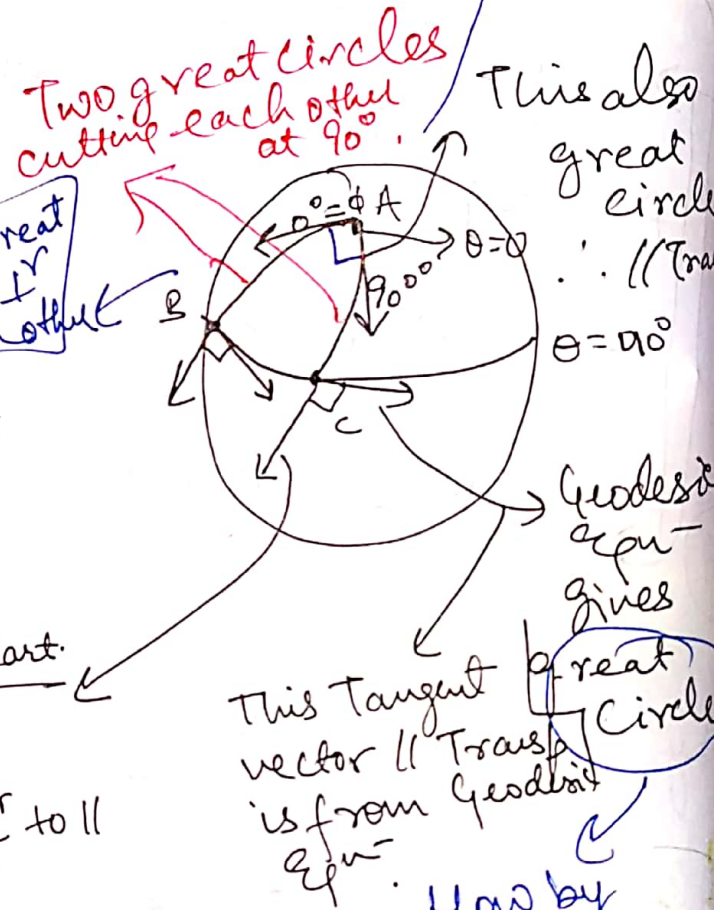 Two great circles
cutting each other
at 90°.
This also
great
circle
∴ //Tra
reat
r
other
0°=ϕ A
θ=0
90°
B
θ=90°
C
Geodesi
Equⁿ
gives
great
Circle
art.
This Tangent
vector // Transp
is from Geodesic
Equⁿ.
to //
How by